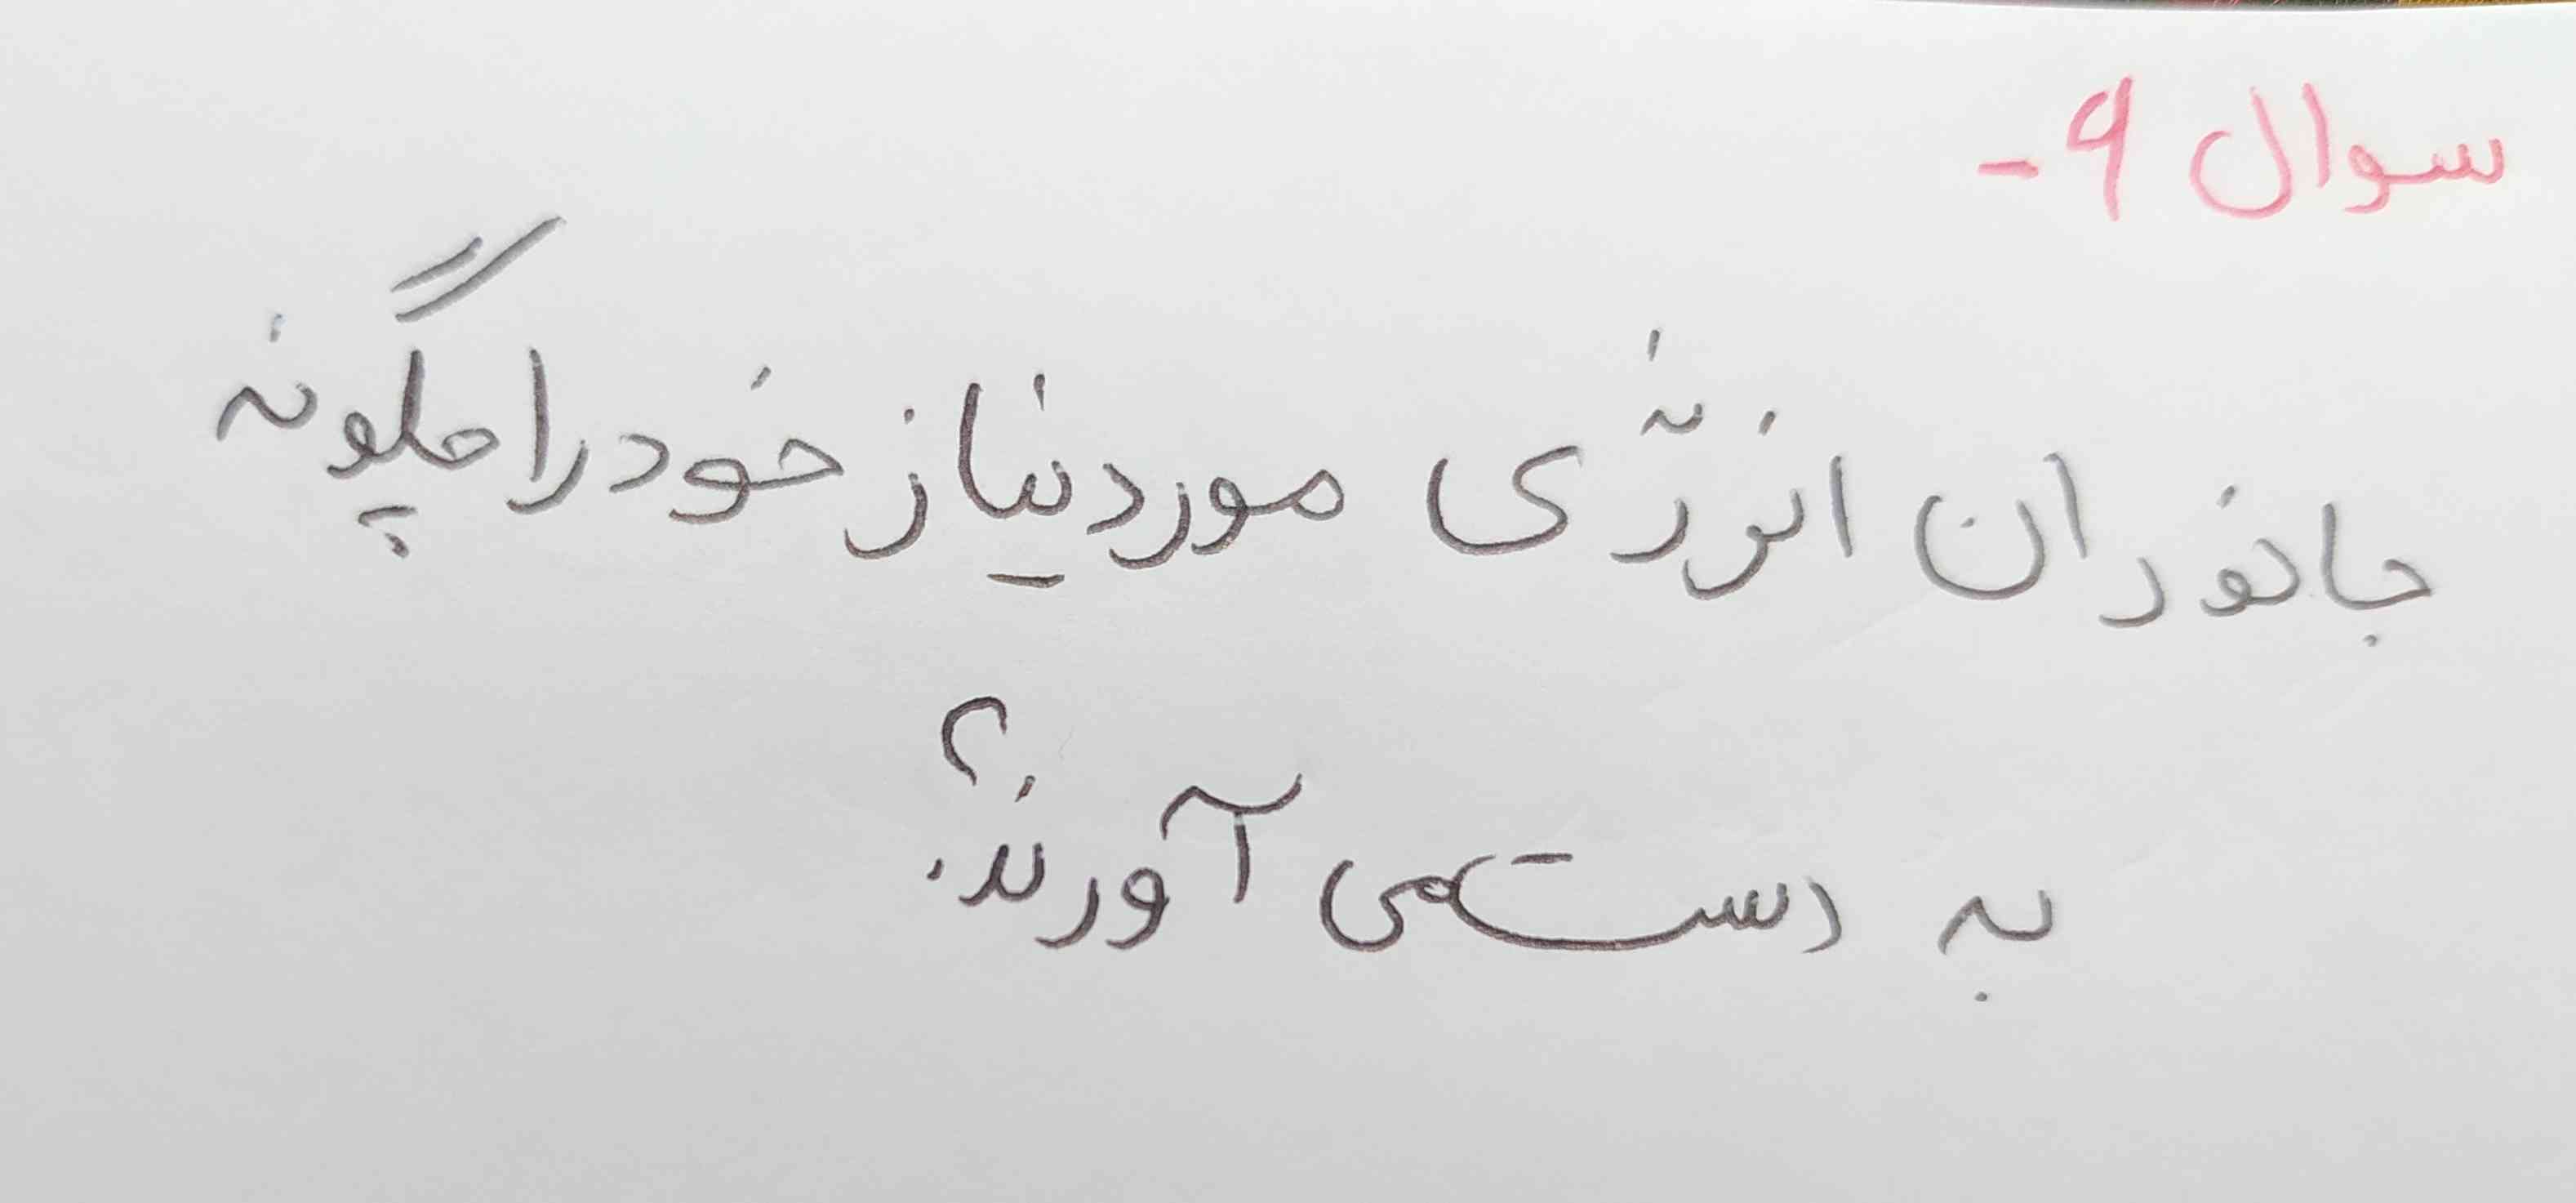 سوال ۹-
جانوران انرژی مورد نیاز خود را چگونه
به دست می آورند؟